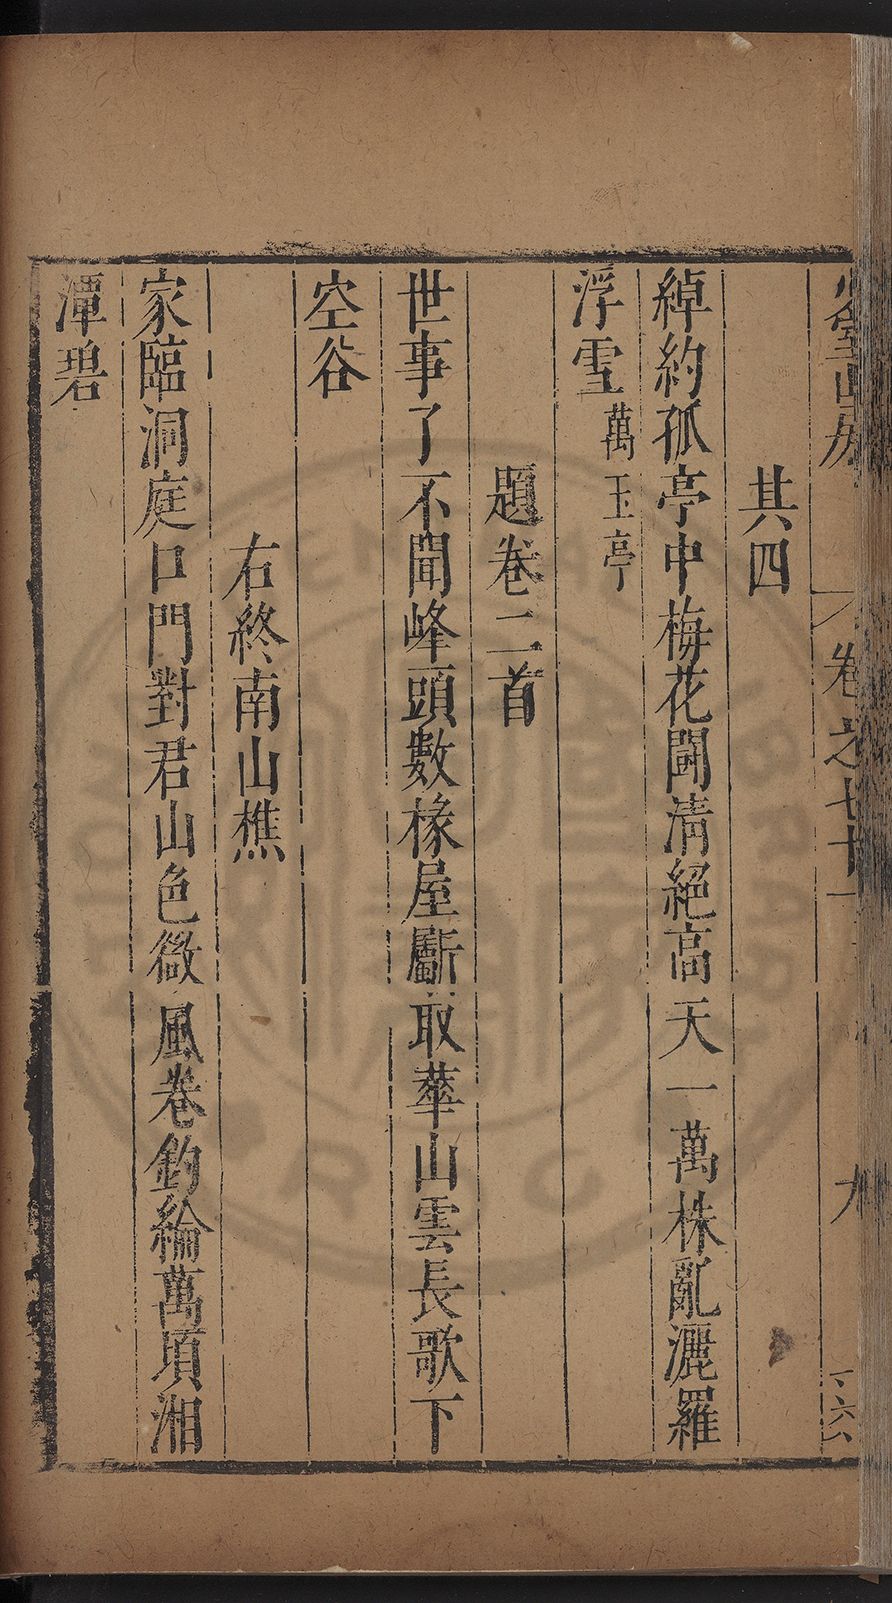 卷之七十一
九
其四
綽約孤亭中梅花鬪清絕高天一萬株亂灑羅
浮雪萬玉亭
題卷二首
世事了不聞峰頭數椽屋斸取華山雲長歌下
空谷
右終南山樵
家臨洞庭口門對君山色微風卷釣綸萬頃湘
潭碧